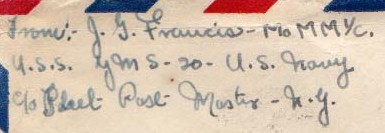 From:- J. G. Francis - Mo M M 1/c.
U.S.S. YMS-20- U.S. Navy
c/o Fleet Post Master - N.Y.